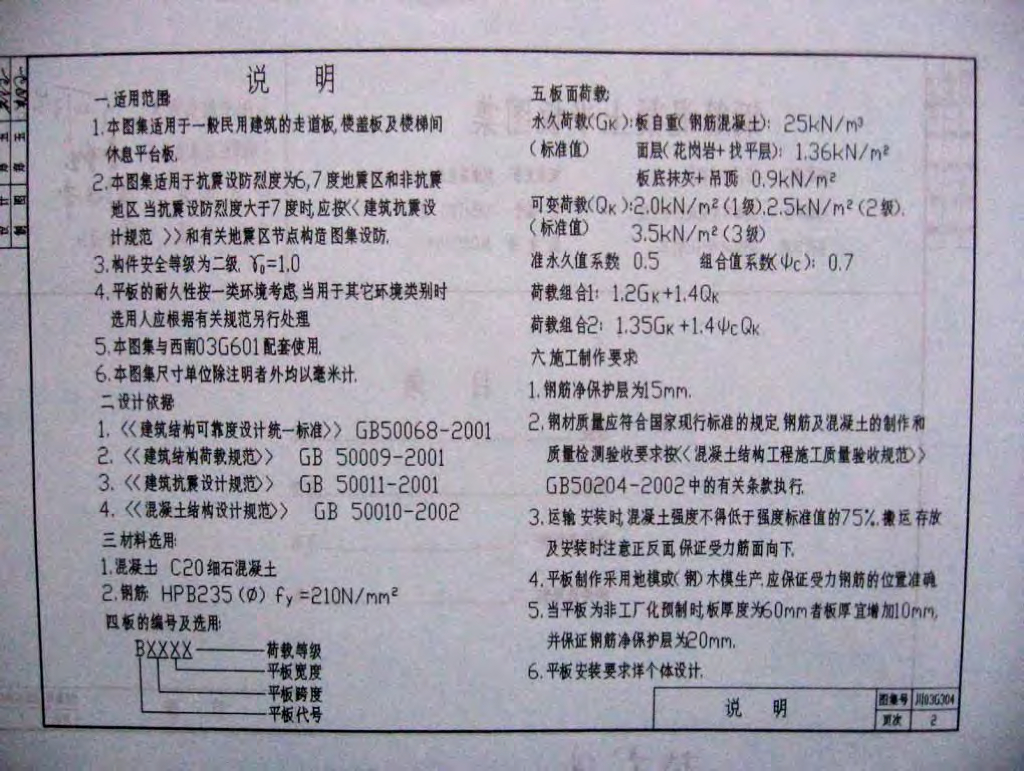 说 明
一.适用范围:
1.本图集适用于一般民用建筑的走道板,楼盖板及楼梯间
休息平台板.
2.本图集适用于抗震设防烈度为6,7度地震区和非抗震
地区.当抗震设防烈度大于7度时,应按<<建筑抗震设
计规范 >>和有关地震区节点构造图集设防.
3.构件安全等级为二级. γ0=1.0
4.平板的耐久性按一类环境考虑,当用于其它环境类别时
选用人应根据有关规范另行处理
5.本图集与西南03G601配套使用.
6.本图集尺寸单位除注明者外均以毫米计.
二.设计依据:
1. <<建筑结构可靠度设计统一标准>> GB50068-2001
2. <<建筑结构荷载规范>> GB 50009-2001
3. <<建筑抗震设计规范>> GB 50011-2001
4. <<混凝土结构设计规范>> GB 50010-2002
三.材料选用:
1.混凝土: C20细石混凝土
2.钢筋: HPB235(Φ) fy=210N/mm²
四.板的编号及选用:
BXXXX
荷载等级
平板宽度
平板跨度
平板代号
五.板面荷载:
永久荷载(GK):板自重(钢筋混凝土): 25kN/m³
(标准值) 面层(花岗岩+找平层): 1.36kN/m²
板底抹灰+吊顶 0.9kN/m²
可变荷载(QK):2.0kN/m²(1级),2.5kN/m²(2级).
(标准值) 3.5kN/m²(3级)
准永久值系数: 0.5 组合值系数(ψc): 0.7
荷载组合1: 1.2GK+1.4QK
荷载组合2: 1.35GK+1.4ψcQK
六.施工制作要求:
1.钢筋净保护层为15mm.
2.钢材质量应符合国家现行标准的规定,钢筋及混凝土的制作和
质量检测验收要求按<<混凝土结构工程施工质量验收规范>>
GB50204-2002中的有关条款执行.
3.运输,安装时,混凝土强度不得低于强度标准值的75%.搬运,存放
及安装时注意正反面,保证受力筋面向下.
4.平板制作采用地模或(钢)木模生产,应保证受力钢筋的位置准确.
5.当平板为非工厂化预制时,板厚度为60mm者板厚宜增加10mm,
并保证钢筋净保护层为20mm.
6.平板安装要求详个体设计.
说 明
图集号 川03G304
页次 2